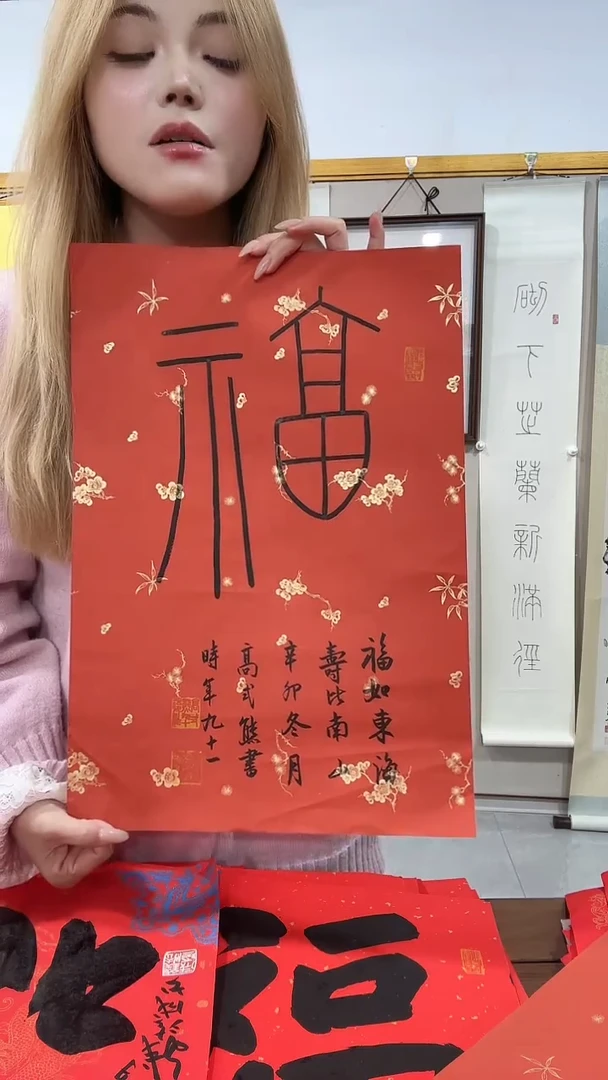 福
福如東海
壽比南山
辛卯冬月
高式熊書
時年九十一
砌下芷蘭新滿徑
福